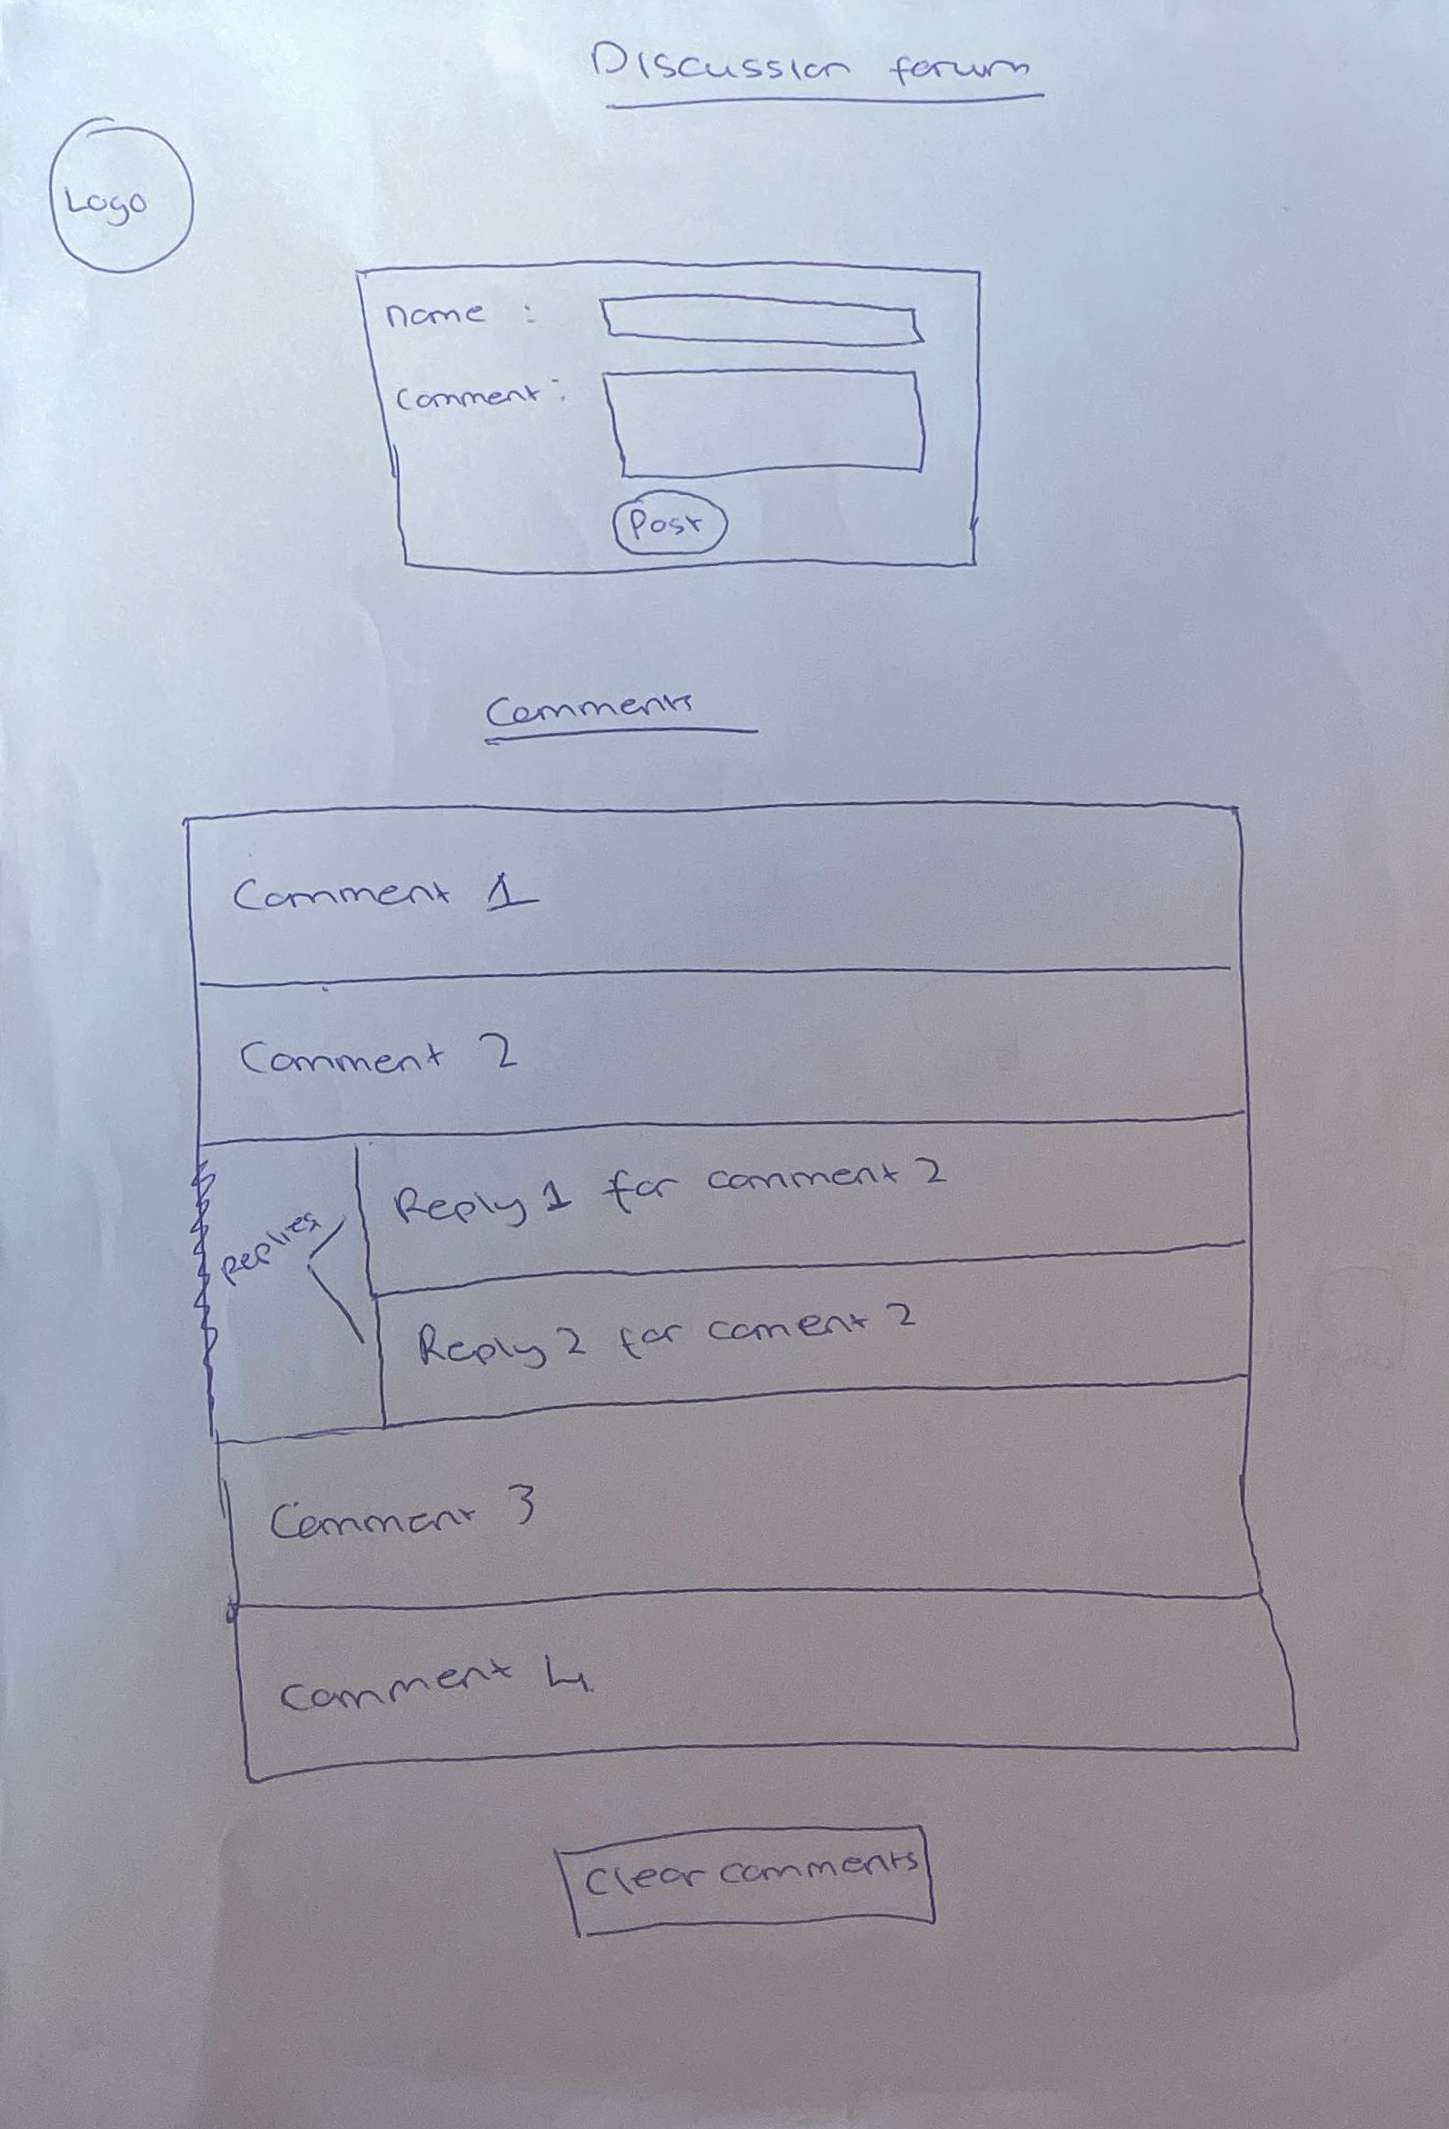 Discussion forum
Logo
name :
comment :
Post
Comments
Comment 1
Comment 2
replies
Reply 1 for comment 2
Reply 2 for coment 2
Comment 3
comment 4.
clear comments